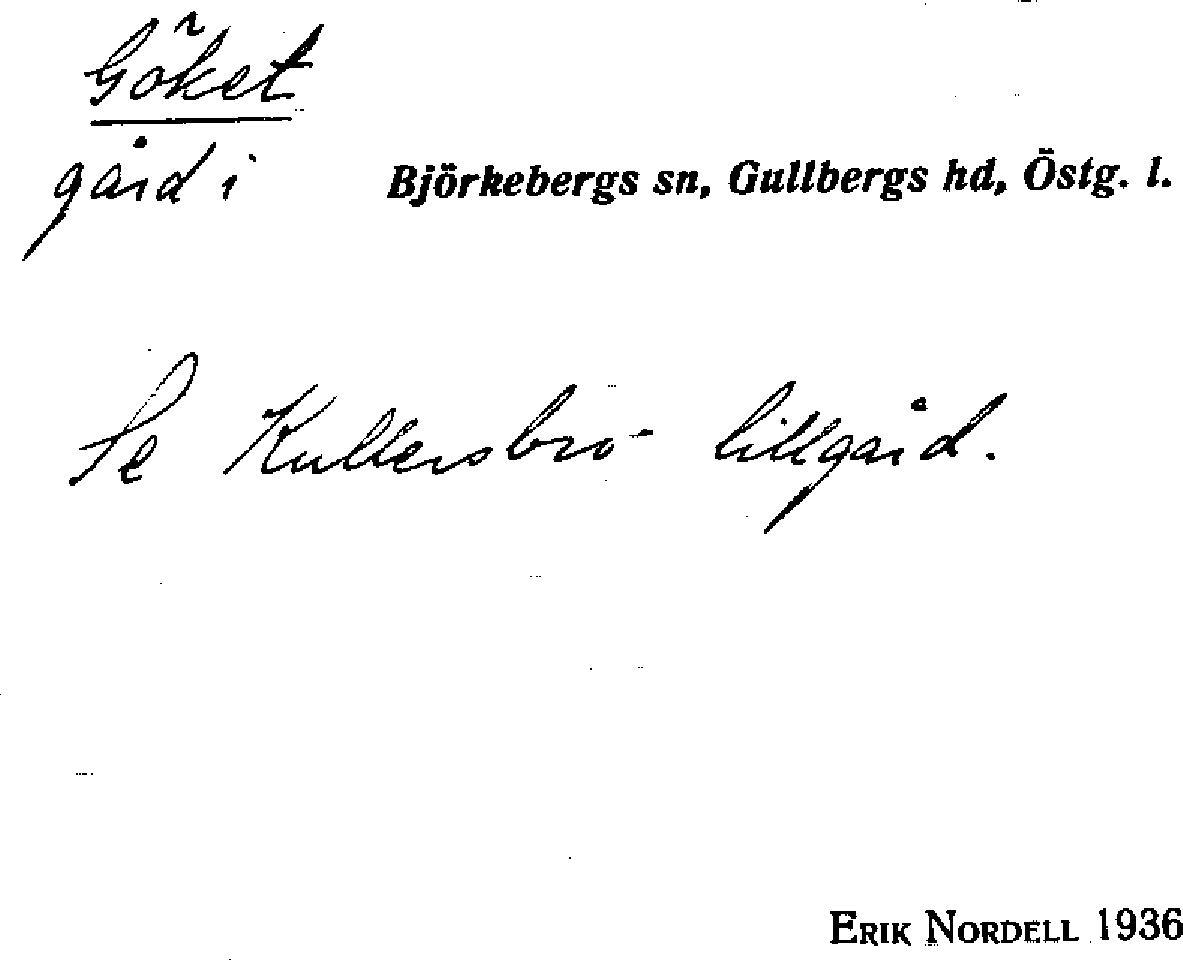 Göket
gård i Björkebergs sn, Gullbergs hd, Östg. l.
Se Kullersbro lillgård.
ERIK NORDELL 1936